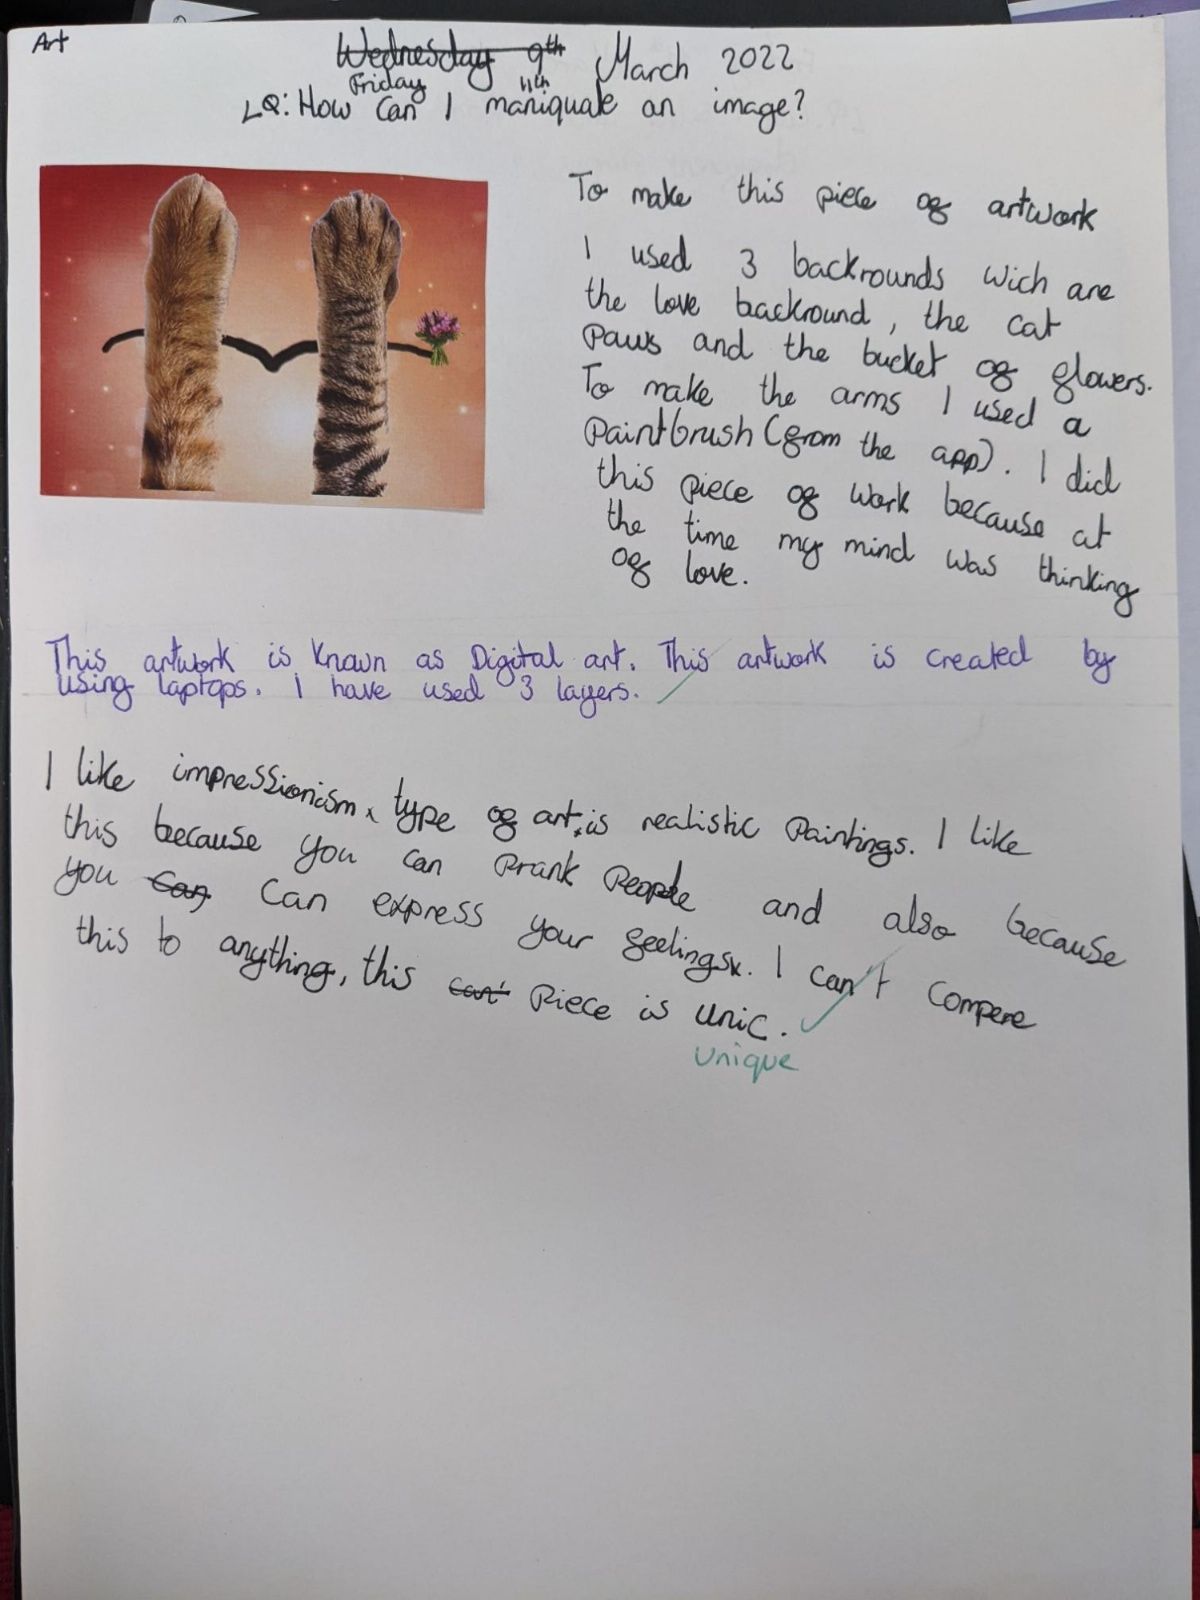 Art
Wednesday 9th March 2022
Friday 11th
LQ: How can I maniqulate an image?
To make this piece of artwork
I used 3 backrounds wich are
the love backround, the cat
paws and the bucket of flowers.
To make the arms I used a
paintbrush (from the app). I did
this piece of work because at
the time my mind was thinking
of love.
This artwork is known as Digital art. This artwork is created by
using laptops. I have used 3 layers.
I like impressionism, type of art. is realistic paintings. I like
this because you can prank people and also because
you can can express your feelings. I can't compere
this to anything, this can't piece is unic.
unique